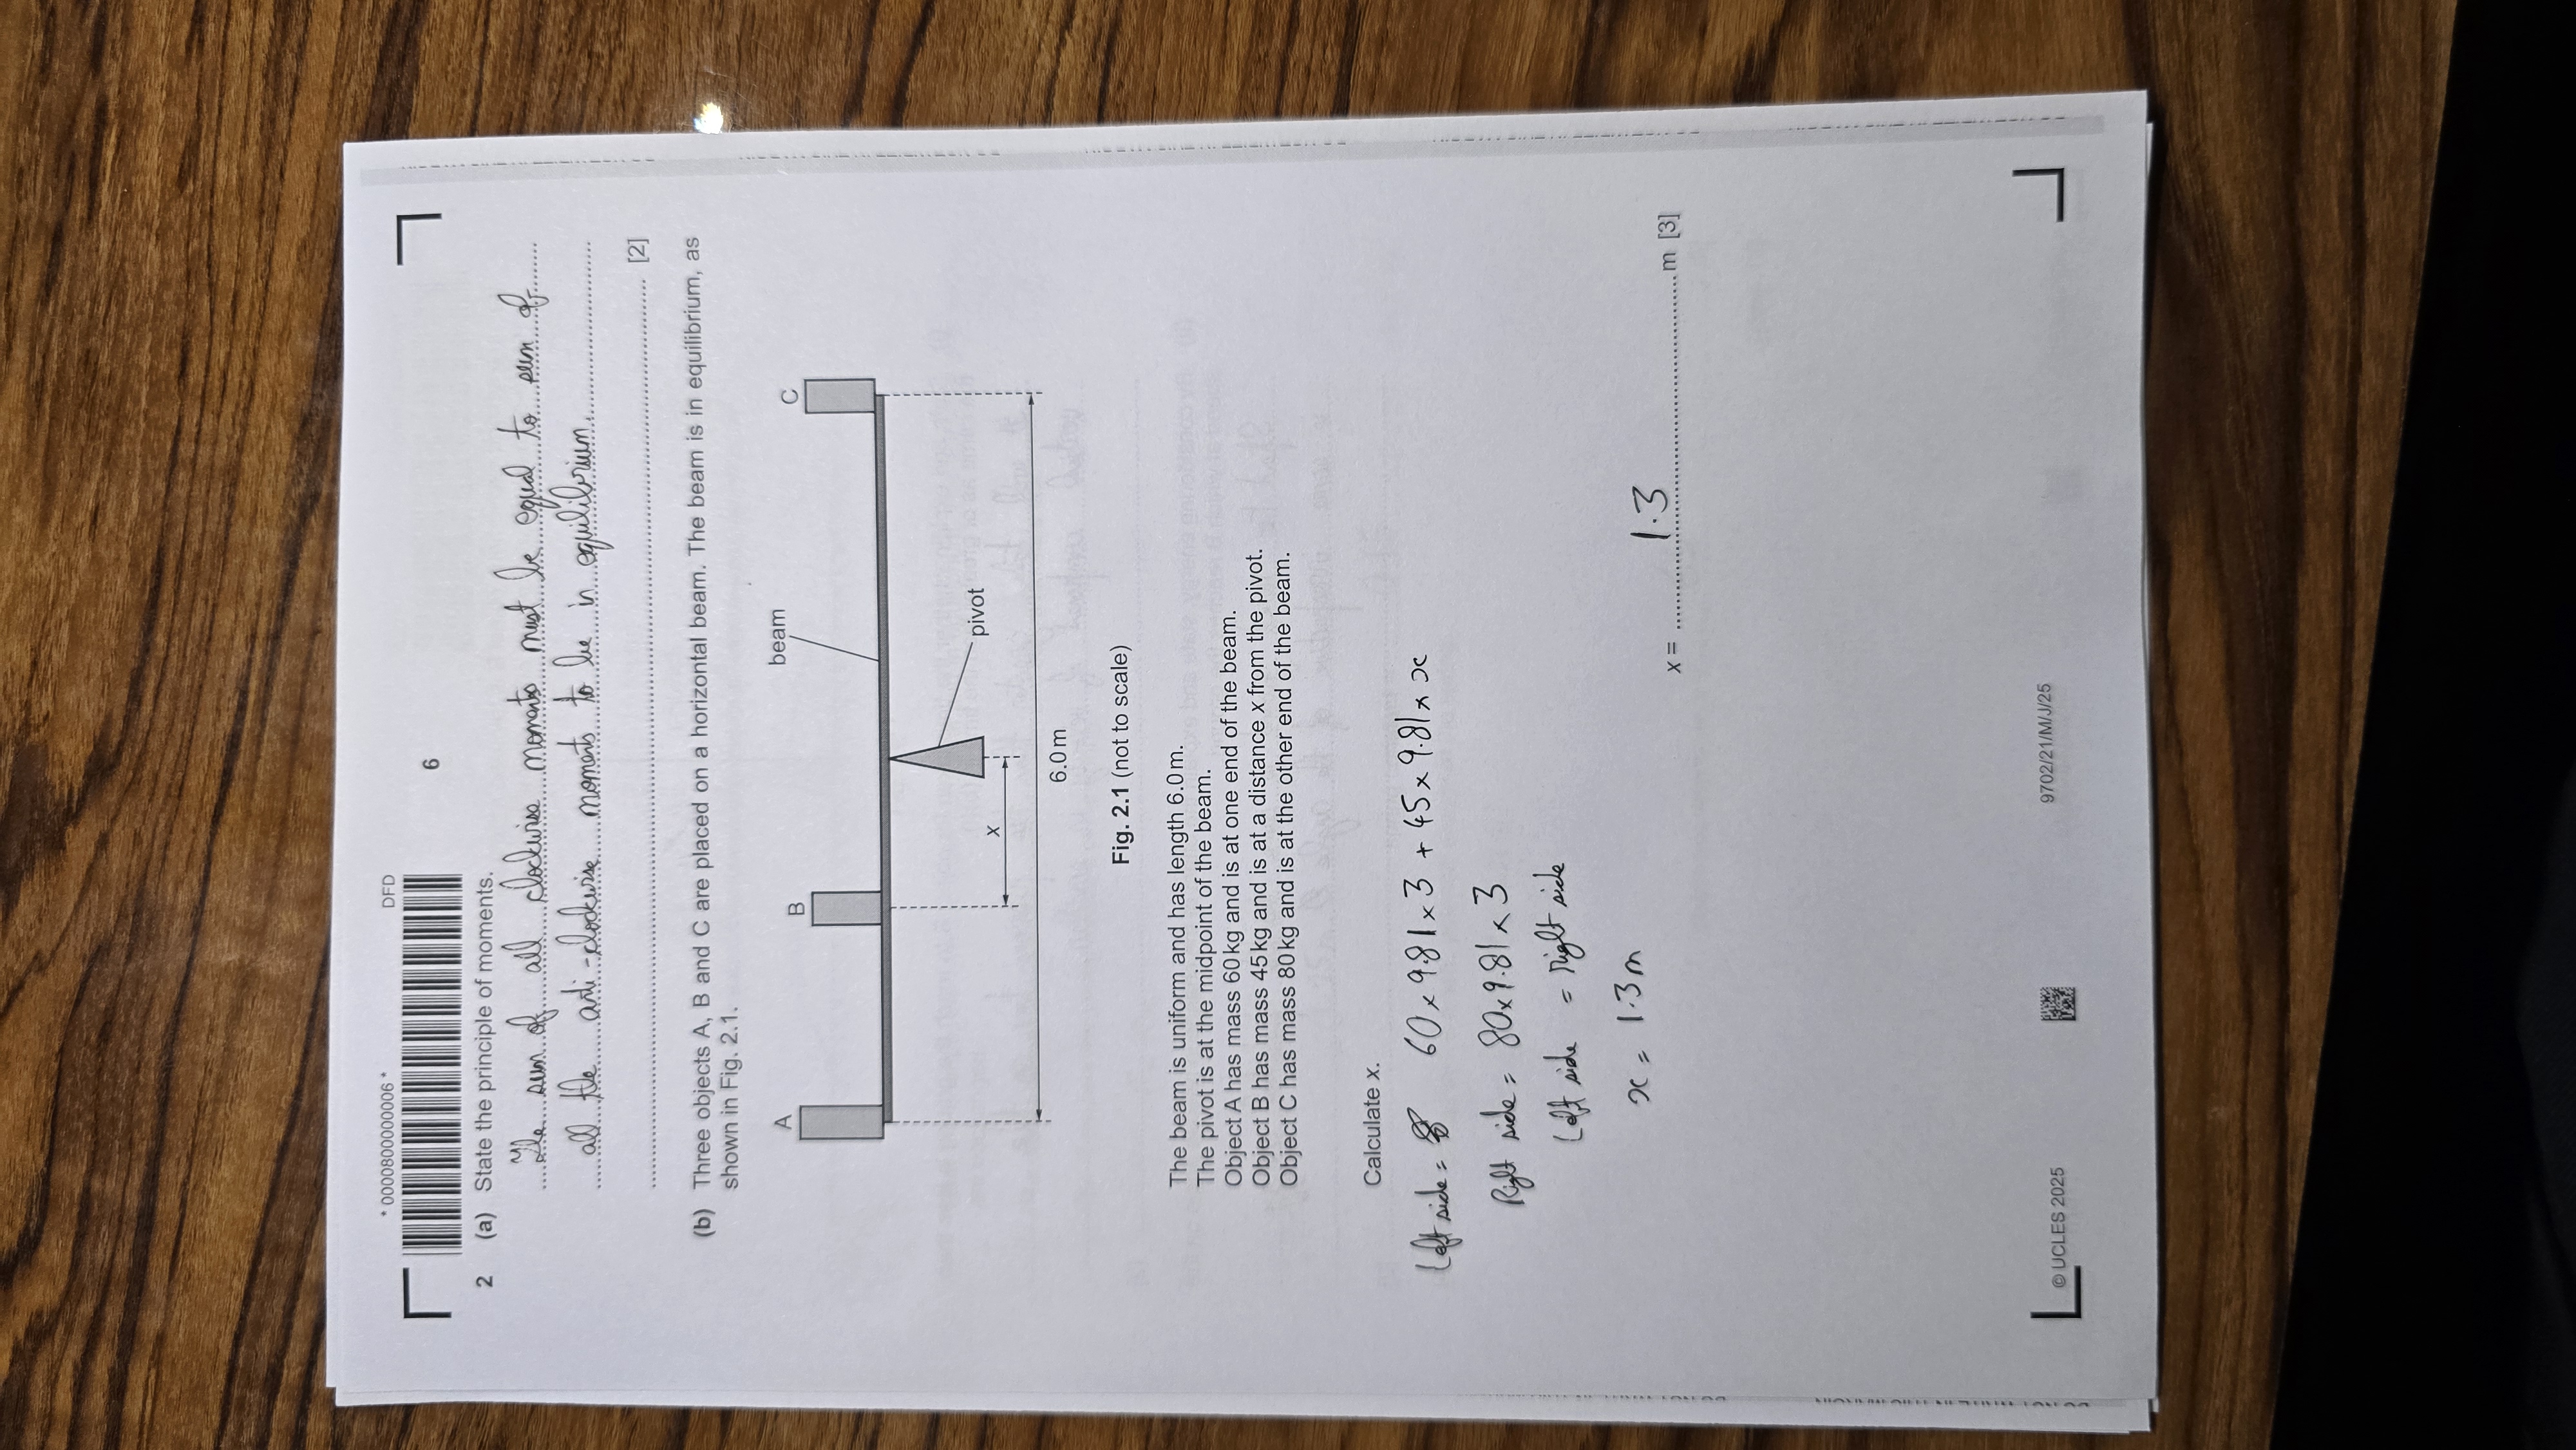 * 0000800000006 *
DFD
6
2 (a) State the principle of moments.
The sum of all clockwise moments must be equal to sum of
all the anti-clockwise moments to be in equilibrium.
[2]
(b) Three objects A, B and C are placed on a horizontal beam. The beam is in equilibrium, as
shown in Fig. 2.1.
A
B
beam
C
pivot
x
6.0 m
Fig. 2.1 (not to scale)
The beam is uniform and has length 6.0 m.
The pivot is at the midpoint of the beam.
Object A has mass 60 kg and is at one end of the beam.
Object B has mass 45 kg and is at a distance x from the pivot.
Object C has mass 80 kg and is at the other end of the beam.
Calculate x.
Left side = 60 x 9.81 x 3 + 45 x 9.81 x x
Right side = 80 x 9.81 x 3
Left side = right side
x = 1.3 m
x = 1.3 m [3]
© UCLES 2025
9702/21/M/J/25